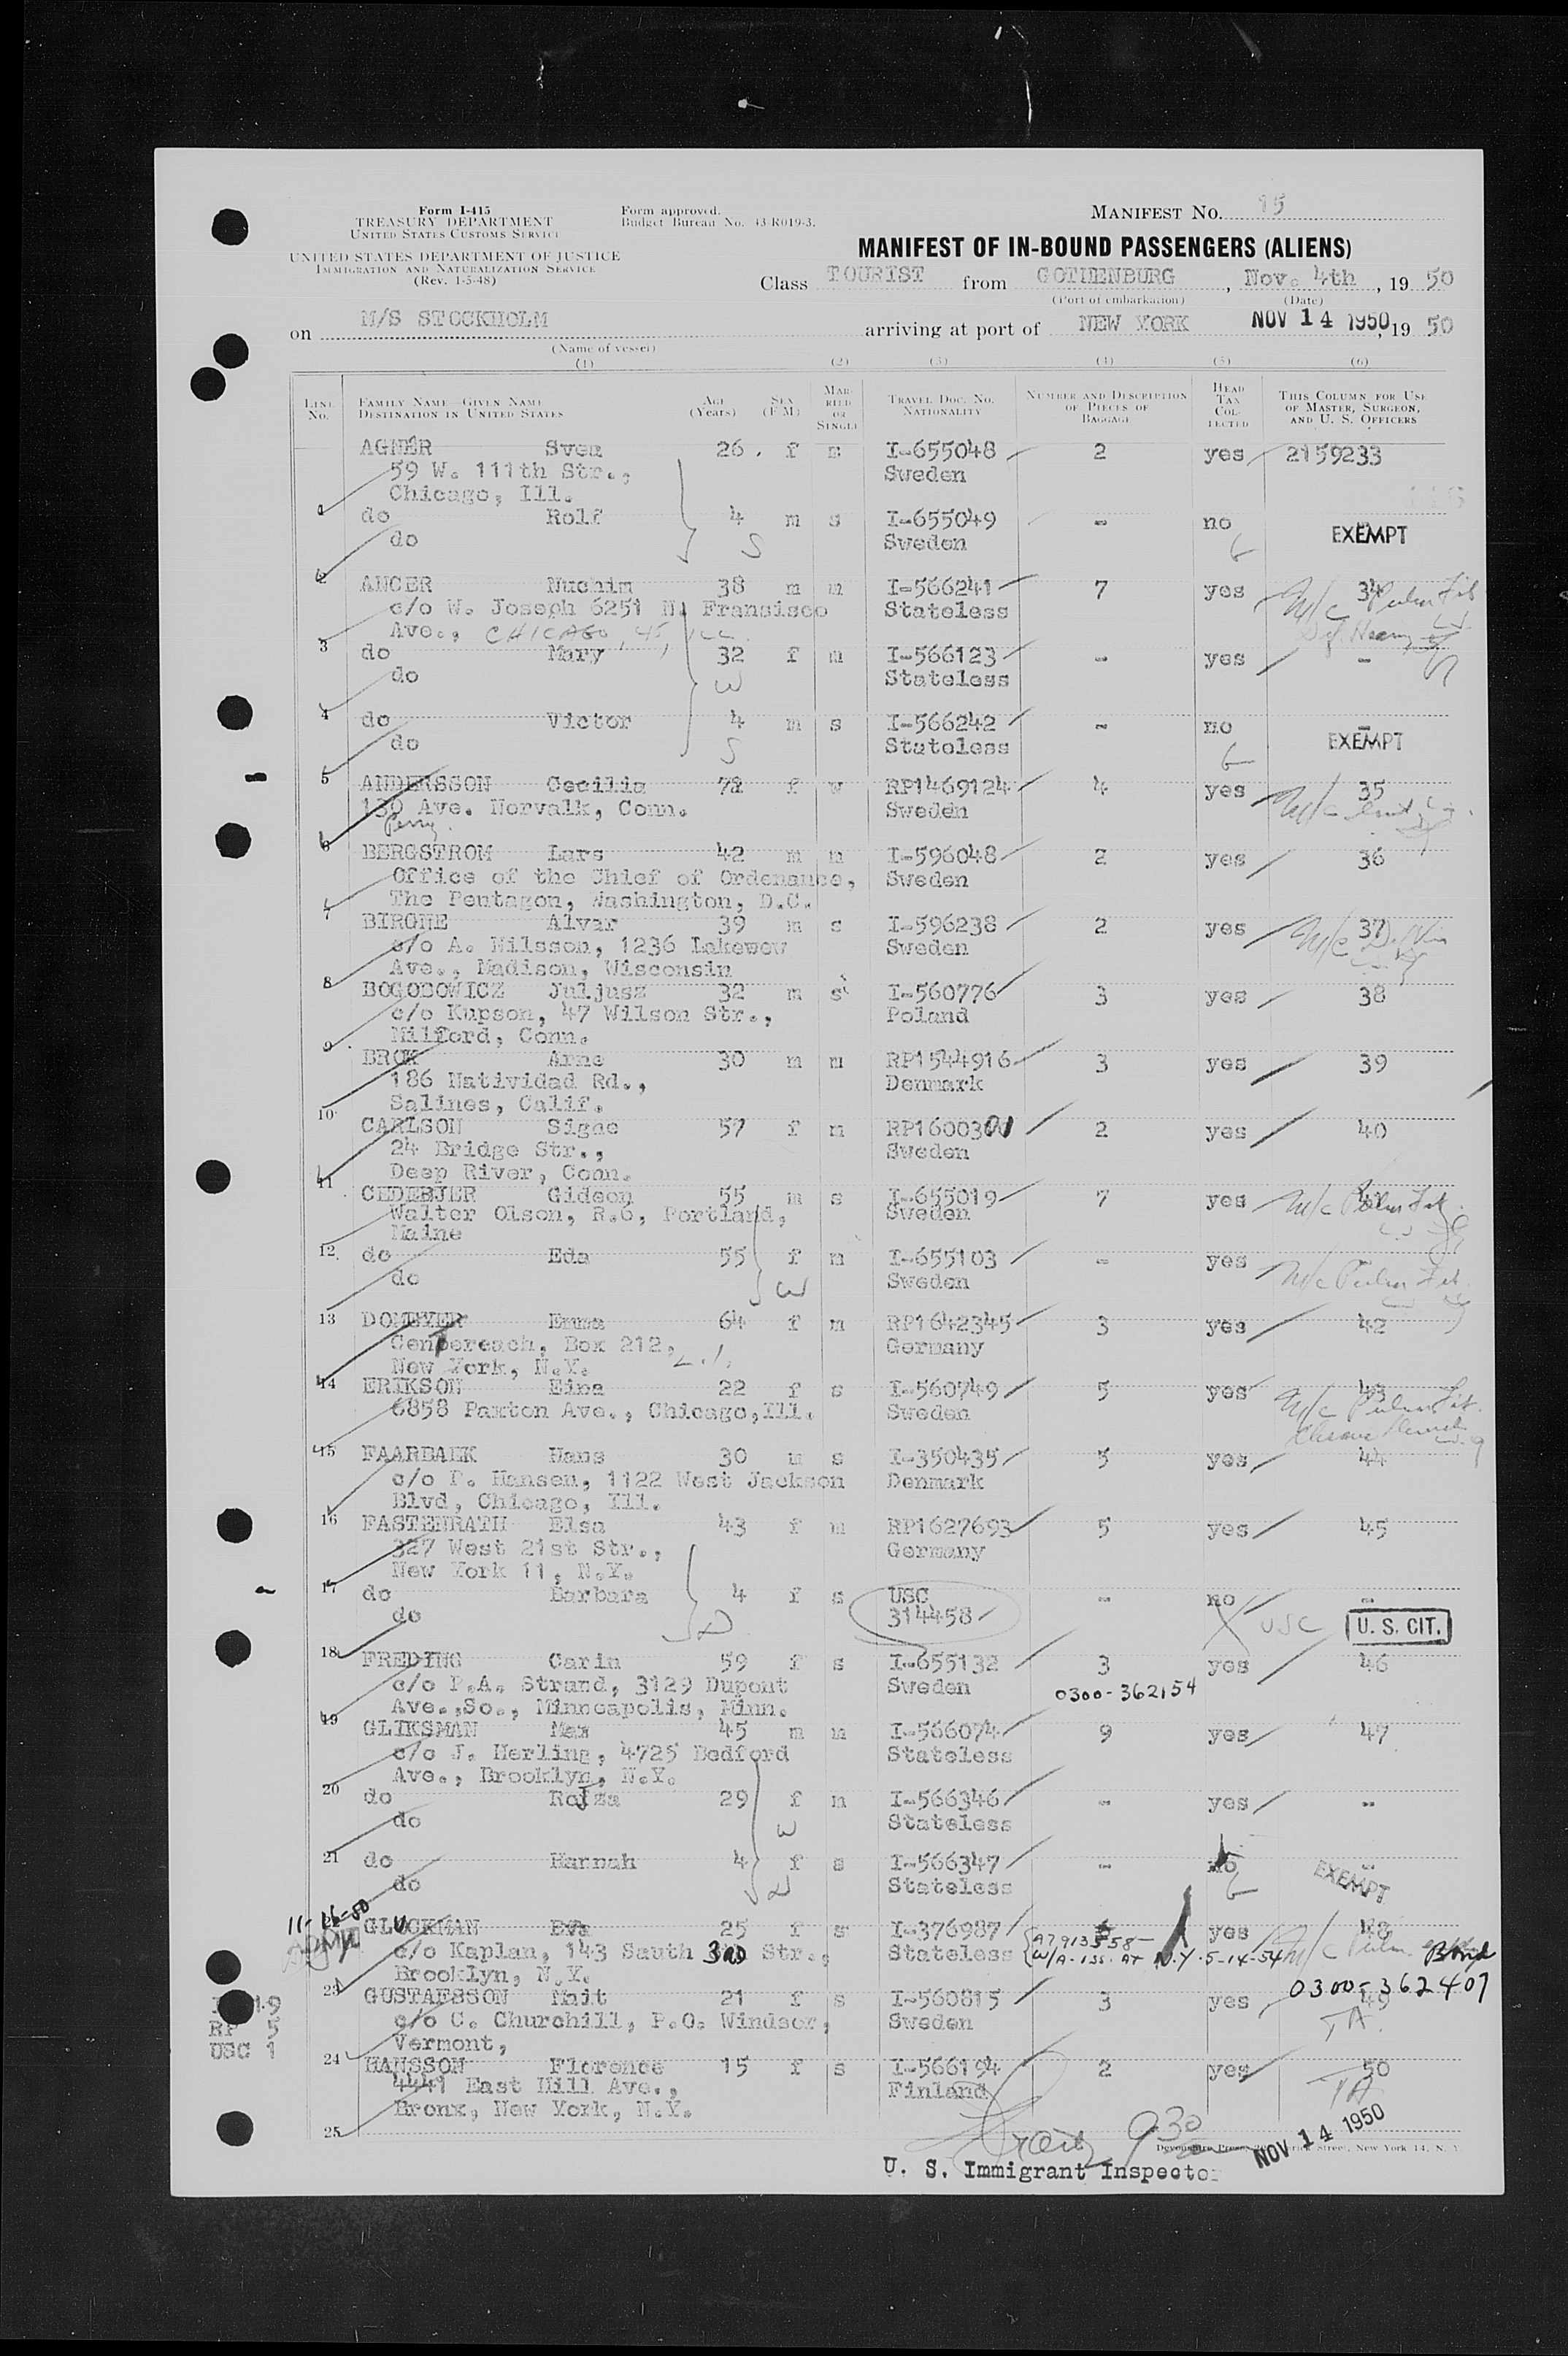 Form I-415
TREASURY DEPARTMENT
UNITED STATES CUSTOMS SERVICE
Form approved.
Budget Bureau No. 43-R019-3.
MANIFEST NO. 15
UNITED STATES DEPARTMENT OF JUSTICE
IMMIGRATION AND NATURALIZATION SERVICE
(Rev. 1-5-48)
MANIFEST OF IN-BOUND PASSENGERS (ALIENS)
Class TOURIST from GOTHENBURG, Nov. 4th, 19 50
(Port of embarkation) (Date)
on M/S STOCKHOLM arriving at port of NEW YORK NOV 14 1950, 19 50
(Name of vessel)
(1) (2) (3) (4) (5) (6)
LINE No. FAMILY NAME—GIVEN NAME DESTINATION IN UNITED STATES AGE (Years) SEX (F-M) MARRIED OR SINGLE TRAVEL DOC. NO. NATIONALITY NUMBER AND DESCRIPTION OF PIECES OF BAGGAGE HEAD TAX COLLECTED THIS COLUMN FOR USE OF MASTER, SURGEON, AND U. S. OFFICERS
AGNÉR Svea 26 f s I-655048 2 yes 2159233
59 W. 111th Str., Sweden
Chicago, Ill.
1 do Rolf 4 m s I-655049 - no EXEMPT
do S Sweden
2 ANCER Nuchim 38 m m I-566241 7 yes 34
c/o W. Joseph 6251 N. Fransisco Stateless M/C
Ave., CHICAGO, 45, ILL.
3 do Mary 32 f m I-566123 - yes -
do W Stateless
4 do Victor 4 m s I-566242 - no EXEMPT
do S Stateless
5 ANDERSSON Cecilia 72 f w RP1469124 4 yes 35
130 Ave. Norwalk, Conn. Sweden M/C
Perry
6 BERGSTROM Lars 42 m m I-596048 2 yes 36
Office of the Chief of Ordenance, Sweden
The Pentagon, Washington, D.C.
7 BIRGHE Alvar 39 m s I-596238 2 yes 37
c/o A. Nilsson, 1236 Lakewew Sweden M/C
Ave., Madison, Wisconsin
8 BOGOBOWICZ Juljusz 32 m s I-560776 3 yes 38
c/o Kupson, 47 Wilson Str., Poland
Milford, Conn.
9 BROK Arne 30 m m RP1544916 3 yes 39
186 Natividad Rd., Denmark
Salines, Calif.
10 CARLSON Signe 57 f m RP1600301 2 yes 40
24 Bridge Str., Sweden
Deep River, Conn.
11 CEDERBJER Gideon 55 m s I-655019 7 yes 41
Walter Olson, R.6, Portland, Sweden M/C
Maine
12 do Eda 55 f m I-655103 - yes
do W Sweden M/C
13 DOMEYER Emma 64 f m RP1642345 3 yes 42
Centereach, Box 212, L.I. Germany
New York, N.Y.
14 ERIKSON Eina 22 f s I-560749 5 yes 43
6858 Paxton Ave., Chicago, Ill. Sweden M/C
15 FAARBAEK Hans 30 m s I-350435 5 yes 44
c/o P. Hansen, 1122 West Jackson Denmark
Blvd, Chicago, Ill.
16 FASTENRATH Elsa 43 f m RP1627693 5 yes 45
327 West 21st Str., Germany
New York 11, N.Y.
17 do Barbara 4 f s USC - no -
do D 314458 X USC U. S. CIT.
18 FREDING Carin 59 f s I-655132 3 yes 46
c/o P.A. Strand, 3129 Dupont Sweden 0300-362154
Ave., So., Minneapolis, Minn.
19 GLIKSMAN Max 45 m m I-566074 9 yes 47
c/o J. Herling, 4725 Bedford Stateless
Ave., Brooklyn, N.Y.
20 do Rojza 29 f m I-566346 - yes -
do W Stateless
21 do Hannah 4 f s I-566347 - no EXEMPT
do D Stateless
11-16-50 GLUCKMAN Eva 25 f s I-376987 yes 48
c/o Kaplan, 143 South 3RD Str., Stateless W/A-iss. AT N.Y. 5-14-54 M/C Bond
Brooklyn, N.Y. 0300-362407
23 GUSTAFSSON Mait 21 f s I-560815 3 yes 49
c/o C. Churchill, P.O. Windsor, Sweden TA.
Vermont,
19
RP 5
USC 1
24 HANSSON Florence 15 f s I-566194 2 yes 50
4441 East Hill Ave., Finland TA
Bronx, New York, N.Y.
25
930
NOV 14 1950
U. S. Immigrant Inspector